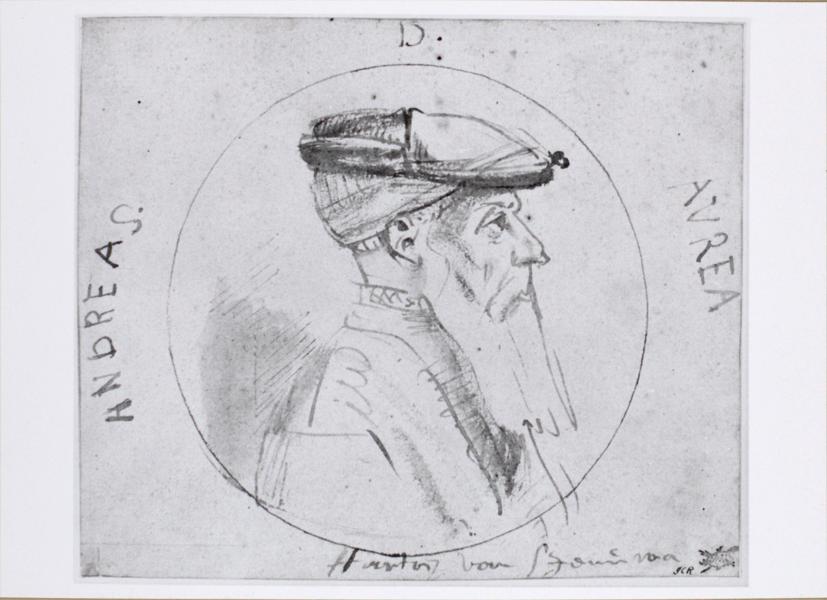 D.
ANDREAS.
AVREA
Hartog van
JCR